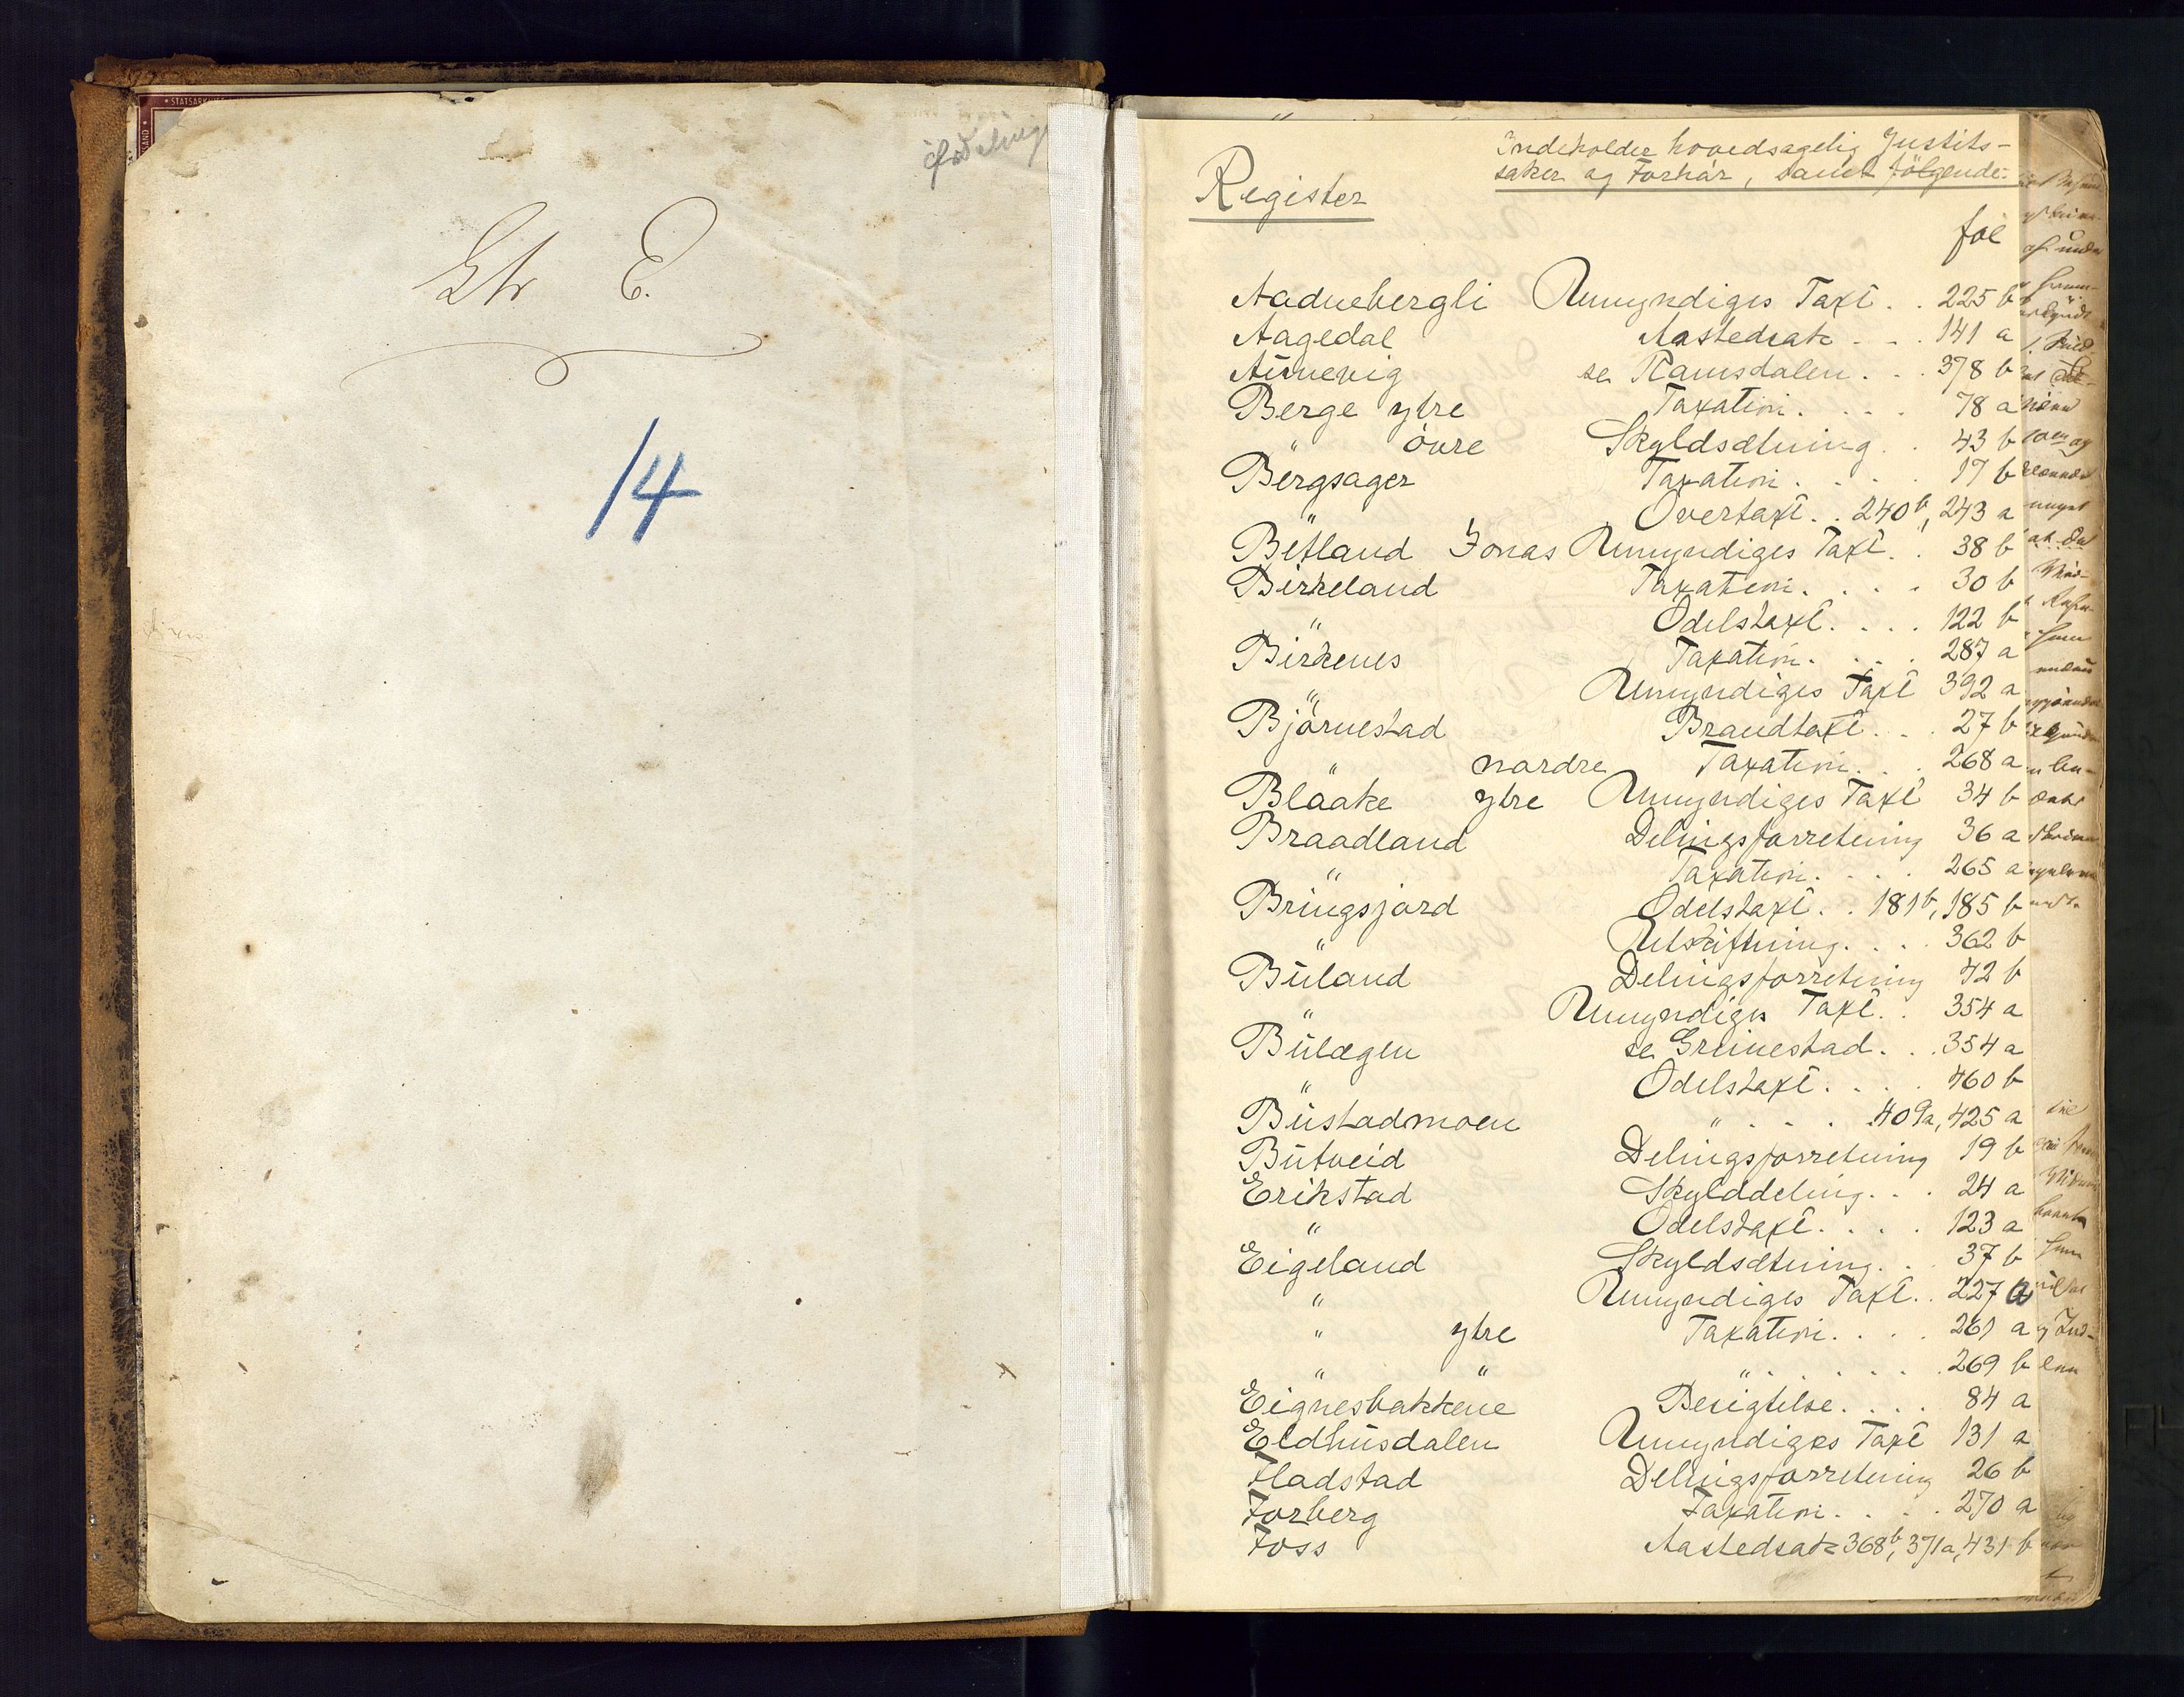 Ltr E.
14
Indeholder hovedsagelig Justits-
saker og Forhör, samt følgende:
Register
fol
Aaduebergli Umyndiges Taxt . . 225 b
Aagedal Aastedsak . . . 141 a
Aunevig se Ramsdalen . . . 378 b
Berge ytre Taxation . . . . 78 a
" övre Skyldsætning . . 43 b
Bergsager Taxation . . . . 17 b
" Overtaxt . . 240 b, 243 a
Betland Jonas Umyndiges Taxt . . 38 b
Birkeland Taxation . . . . 30 b
" Odelstaxt . . . . 122 b
Birkenes Taxation . . . . 287 a
" Umyndiges Taxt 392 a
Björnestad Brandtaxt . . . 27 b
" nordre Taxation . . . 268 a
Blaake ytre Umyndiges Taxt 34 b
Braadland Delingsforretning 36 a
" Taxation . . . . 265 a
Bringsjord Odelstaxt . . 181 b, 185 b
" Utskiftning . . . . 362 b
Buland Delingsforretning 42 b
" Umyndiges Taxt . . 354 a
Bulægen se Greinestad . . . 354 a
" Odelstaxt . . . . 460 b
Bustadmoen " . . . . 409 a, 425 a
Butveid Delingsforretning 19 b
Erikstad Skylddeling . . . 24 a
" Odelstaxt . . . . 123 a
Eigeland Skyldsætning . . 37 b
" Umyndiges Taxt . . 227 a
" ytre Taxation . . . . 261 a
" " " . . . . . . 269 b
Eignesbakkene Besigtelse . . . . 84 a
Eldhusdalen Umyndiges Taxt 131 a
Fladstad Delingsforretning 26 b
Forberg Taxation . . . . 270 a
Foss Aastedsak 368 b, 371 a, 431 b